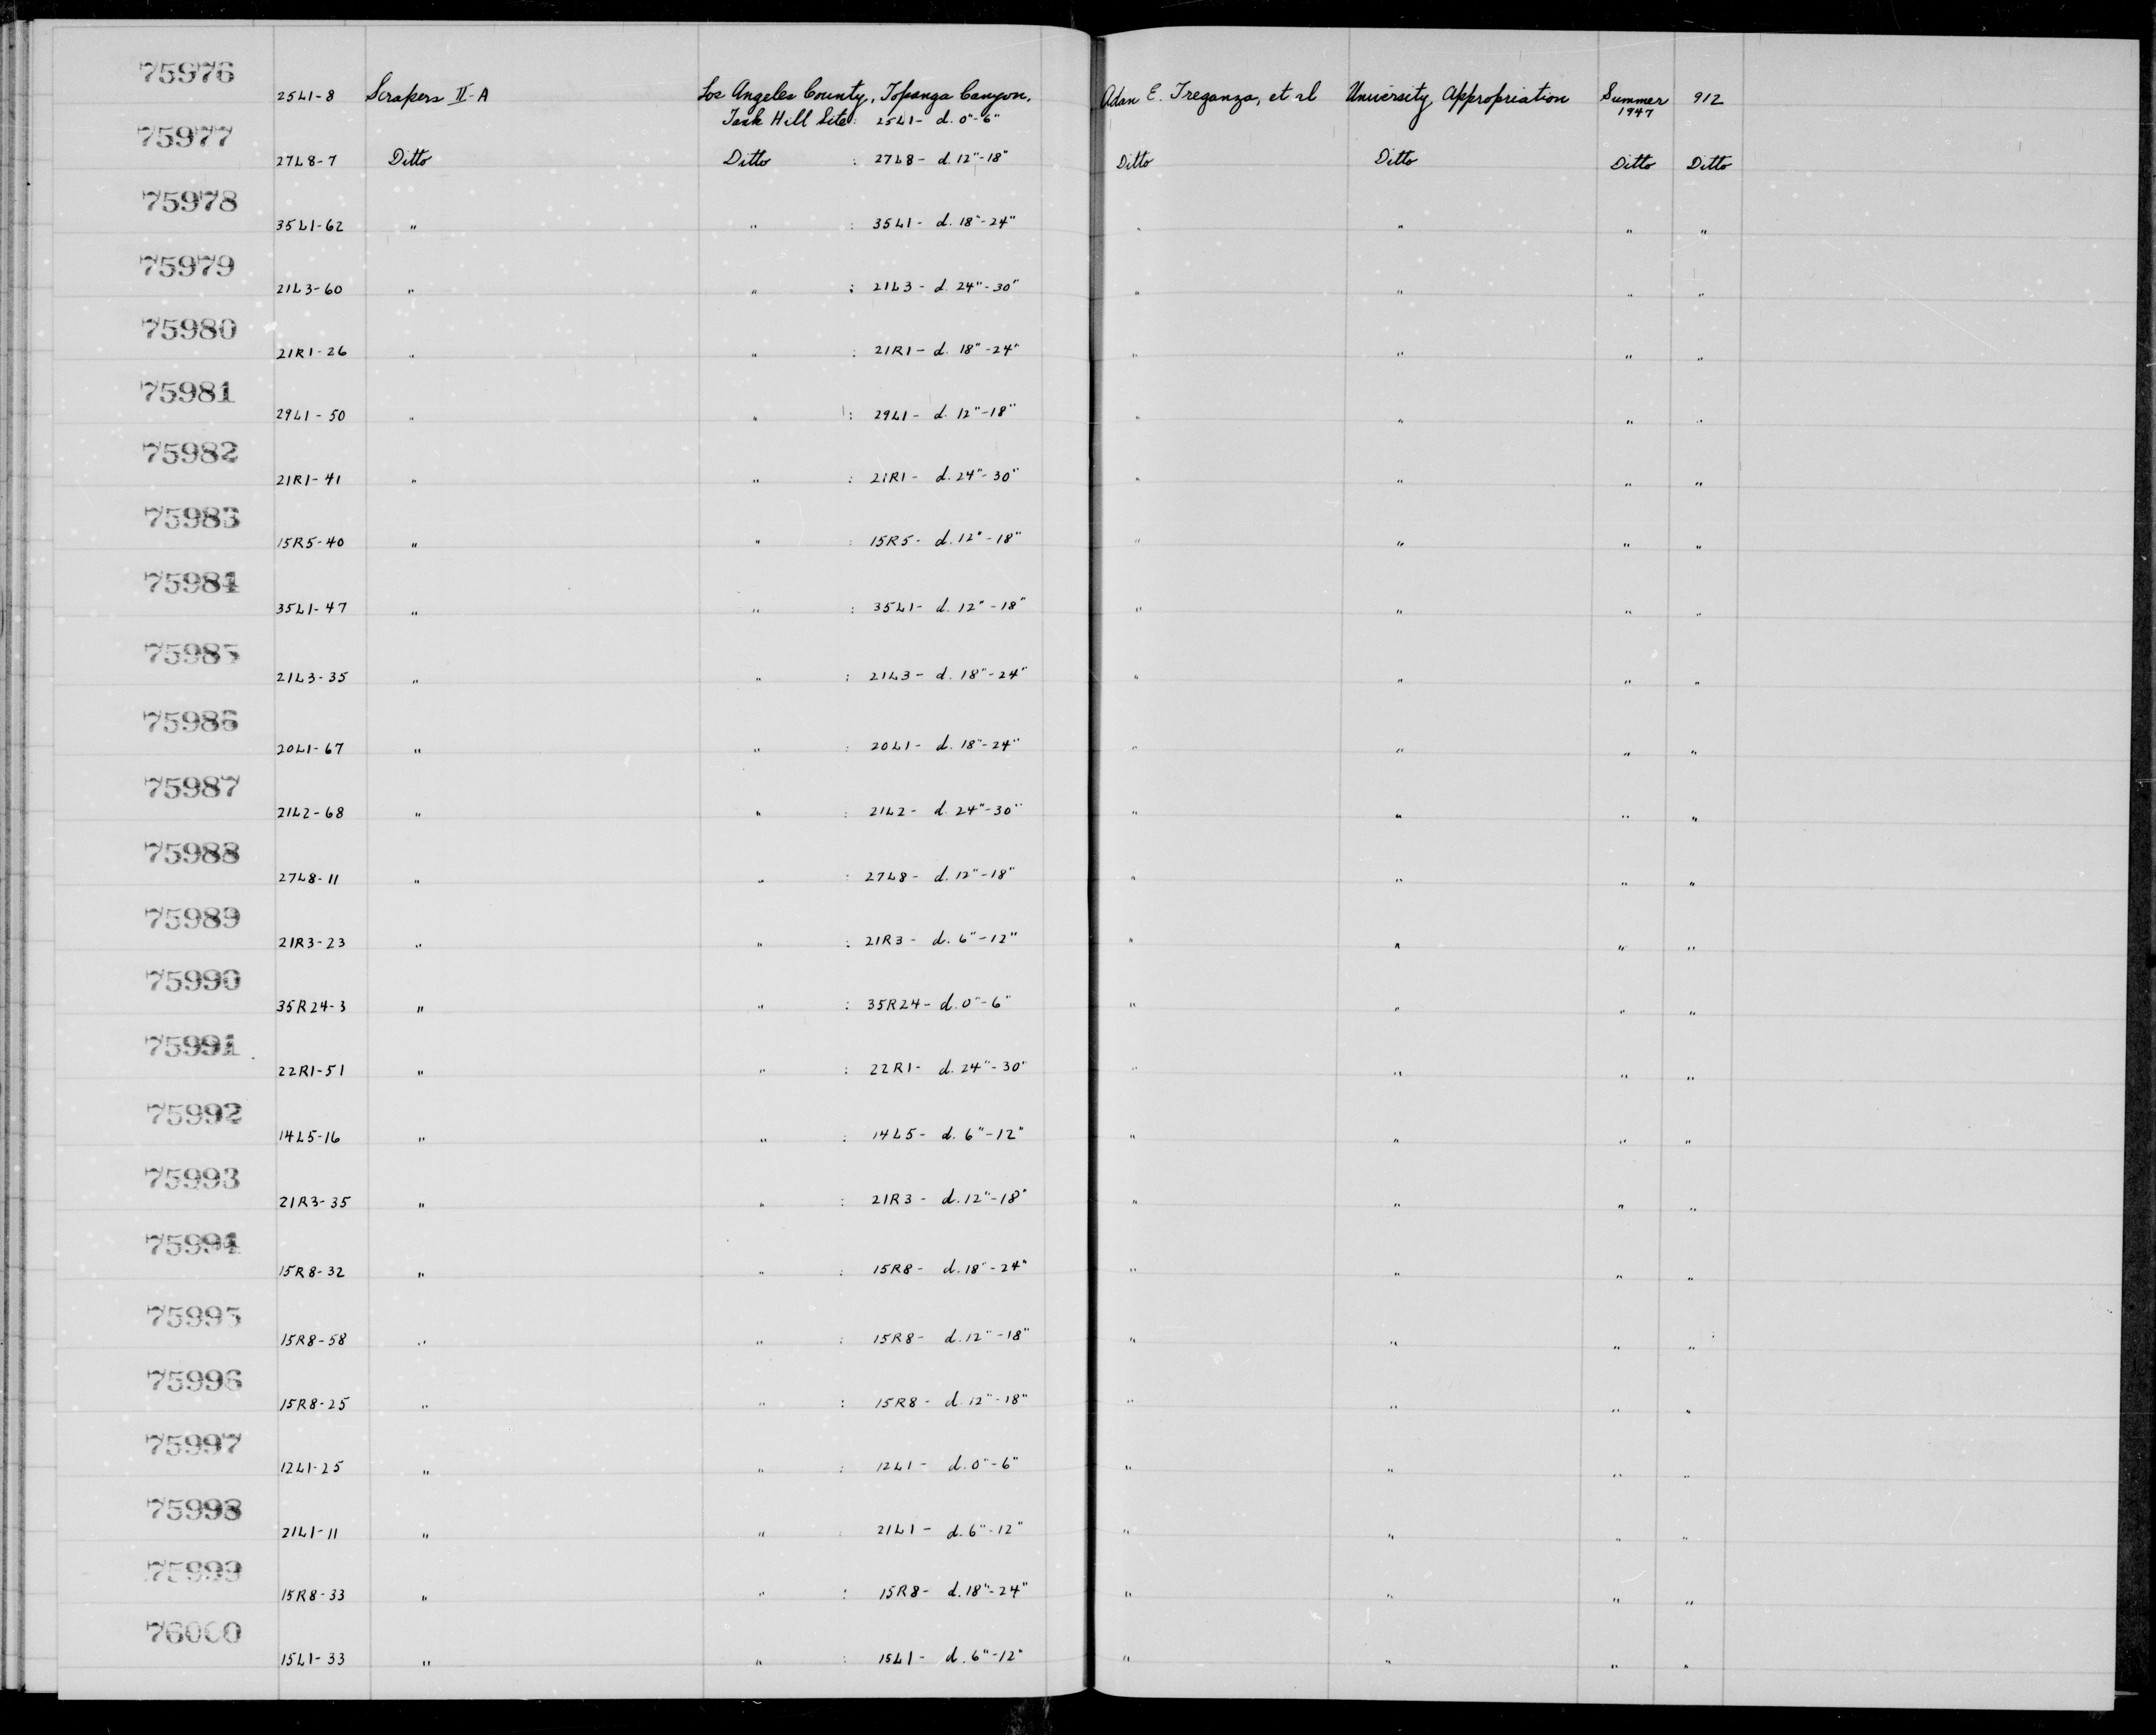 75976
25L1-8 Scrapers II-A Los Angeles County, Topanga Canyon, Adan E. Treganza, et al University Appropriation Summer 912
Tank Hill Site: 25L1- d. 0"-6" 1947
75977
27L8-7 Ditto Ditto : 27L8- d. 12"-18" Ditto Ditto Ditto Ditto
75978
35L1-62 " " : 35L1- d. 18"-24" " " " "
75979
21L3-60 " " : 21L3- d. 24"-30" " " " "
75980
21R1-26 " " : 21R1- d. 18"-24" " " " "
75981
29L1-50 " " : 29L1- d. 12"-18" " " " "
75982
21R1-41 " " : 21R1- d. 24"-30" " " " "
75983
15R5-40 " " : 15R5- d. 12"-18" " " " "
75984
35L1-47 " " : 35L1- d. 12"-18" " " " "
75985
21L3-35 " " : 21L3- d. 18"-24" " " " "
75986
20L1-67 " " : 20L1- d. 18"-24" " " " "
75987
21L2-68 " " : 21L2- d. 24"-30" " " " "
75988
27L8-11 " " : 27L8- d. 12"-18" " " " "
75989
21R3-23 " " : 21R3- d. 6"-12" " " " "
75990
35R24-3 " " : 35R24- d. 0"-6" " " " "
75991
22R1-51 " " : 22R1- d. 24"-30" " " " "
75992
14L5-16 " " : 14L5- d. 6"-12" " " " "
75993
21R3-35 " " : 21R3- d. 12"-18" " " " "
75994
15R8-32 " " : 15R8- d. 18"-24" " " " "
75995
15R8-58 " " : 15R8- d. 12"-18" " " " "
75996
15R8-25 " " : 15R8- d. 12"-18" " " " "
75997
12L1-25 " " : 12L1- d. 0"-6" " " " "
75998
21L1-11 " " : 21L1- d. 6"-12" " " " "
75999
15R8-33 " " : 15R8- d. 18"-24" " " " "
76000
15L1-33 " " : 15L1- d. 6"-12" " " " "